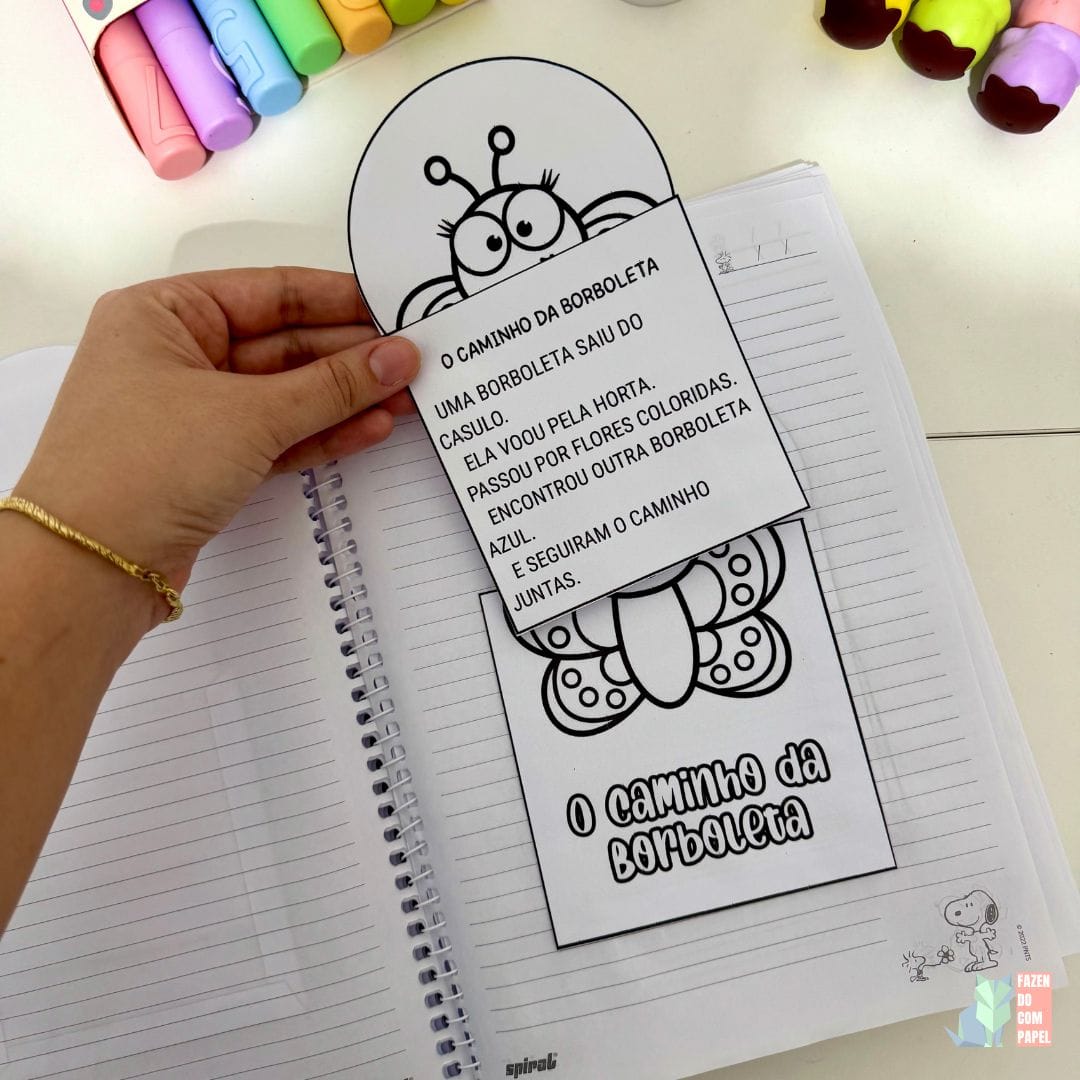 O CAMINHO DA BORBOLETA
UMA BORBOLETA SAIU DO
CASULO.
ELA VOOU PELA HORTA.
PASSOU POR FLORES COLORIDAS.
ENCONTROU OUTRA BORBOLETA
AZUL.
E SEGUIRAM O CAMINHO
JUNTAS.
O caminho da
borboleta
spiral
FAZEN
DO
COM
PAPEL